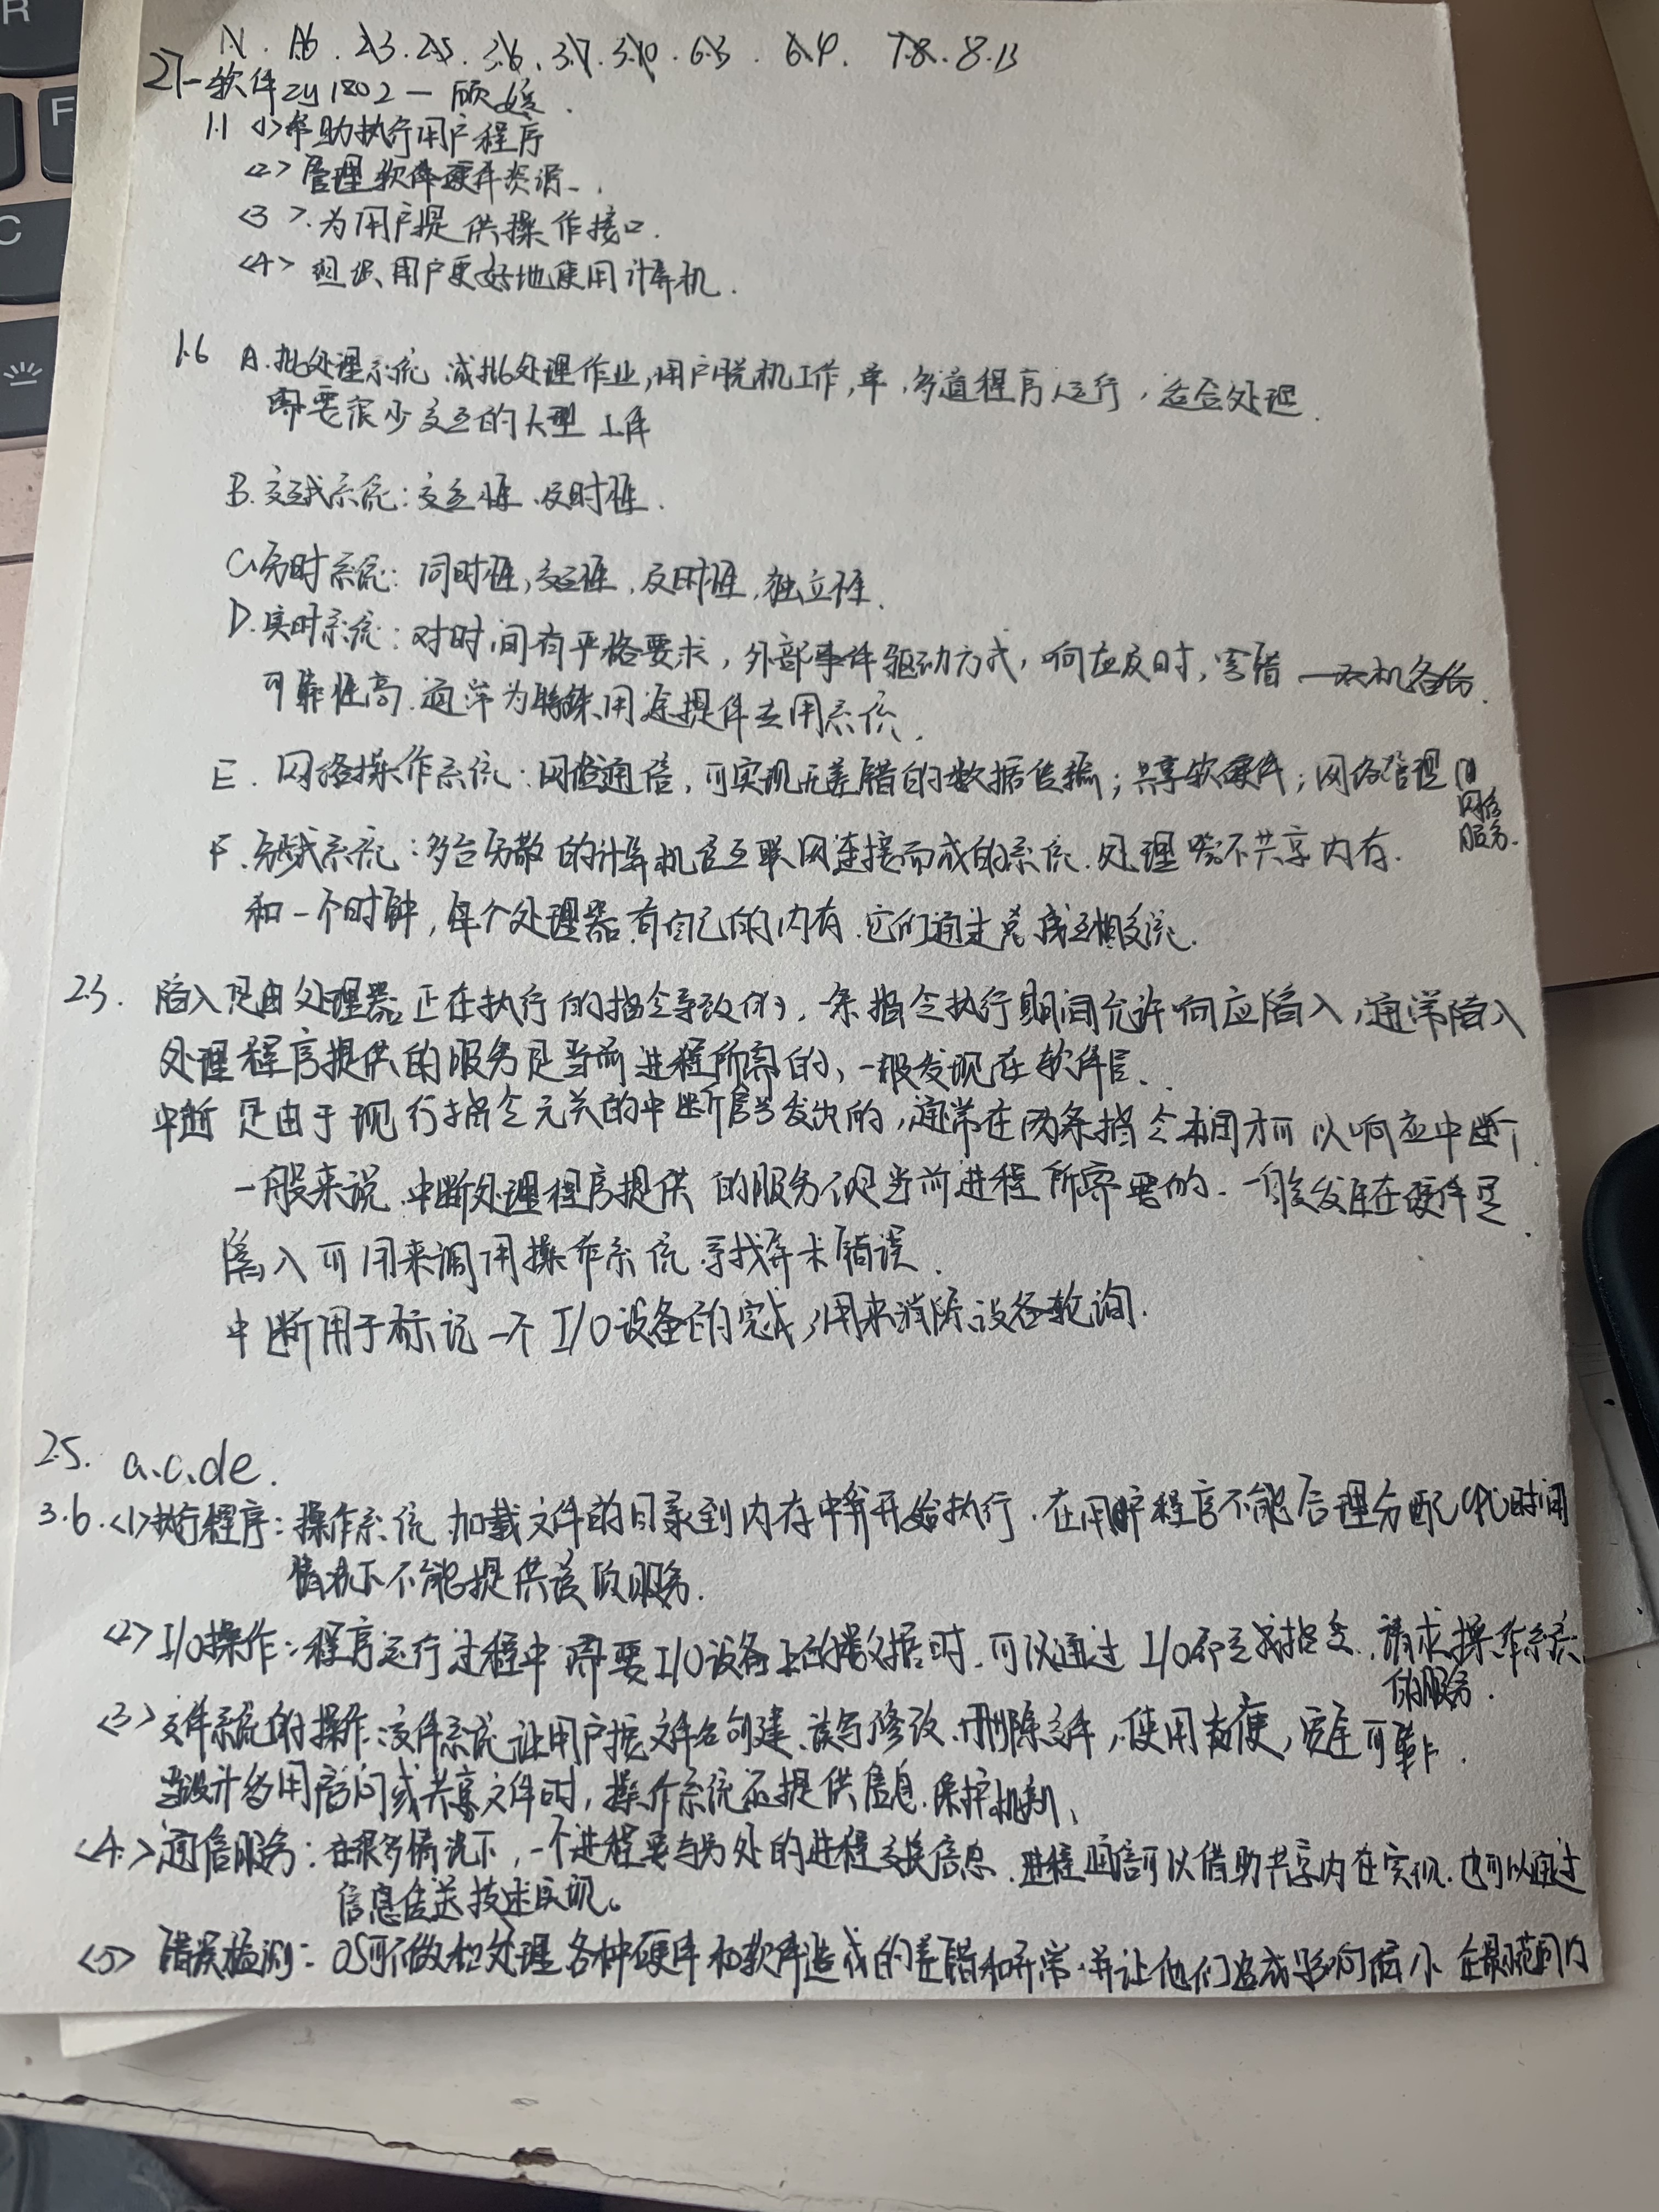 1.1. 1.6. 2.3. 2.5. 3.6. 3.7. 3.10. 6.3. 6.4. 7.8. 8.13
27-软件zy1802-顾媛.
1.1 <1>帮助执行用户程序
<2>管理软件硬件资源.
<3>.为用户提供操作接口.
<4>组织用户更好地使用计算机.
1.6 A.批处理系统 成批处理作业,用户脱机工作,单,多道程序运行,适合处理
需要很少交互的大型工作
B.交互式系统:交互性.及时性.
C.分时系统:同时性,交互性,及时性,独立性.
D.实时系统:对时间有严格要求,外部事件驱动方式,响应及时,容错
可靠性高.通常为特殊用途提供专用系统.
E.网络操作系统:网络通信,可实现无差错的数据传输;共享软硬件;网络管理
网络
服务.
F.分散式系统:多台分散的计算机 互联网连接而成的系统.处理器不共享内存.
和一个时钟,每个处理器有自己的内存.它们通过总线互相交流.
2.3. 陷入是由处理器正在执行的指令导致的,一条指令执行期间允许响应陷入,通常陷入
处理程序提供的服务是当前进程所需的,一般发现在软件层.
中断是由于现行指令无关的中断信号发出的,通常在两条指令 间才可以响应中断.
一般来说.中断处理程序提供的服务不是当前进程所需要的.一般发生在硬件层
陷入可用来调用操作系统.寻找算术错误.
中断用于标记一个I/O设备的完成,用来消除设备轮询.
2.5. a.c.d e.
3.6.<1>执行程序:操作系统加载文件的目录到内存中并开始执行.在用户程序不能合理分配CPU时间
情况下不能提供该项服务.
<2>I/O操作:程序运行过程中需要I/O设备上的数据时.可以通过I/O命令或指令.请求操作系统
的服务.
<3>文件系统的操作:文件系统让用户按文件名创建、读写修改、删除文件,使用方便,安全可靠.
当设计多用户访问或共享文件时,操作系统还提供信息保护机制.
<4>通信服务:在很多情况下,一个进程要与另外的进程交换信息.进程通信可以借助共享内存实现.也可以通过
信息传送技术实现.
<5>错误检测:OS 处理各种硬件和软件造成的差错和异常.并让他们造成影响 小 在最 范围内